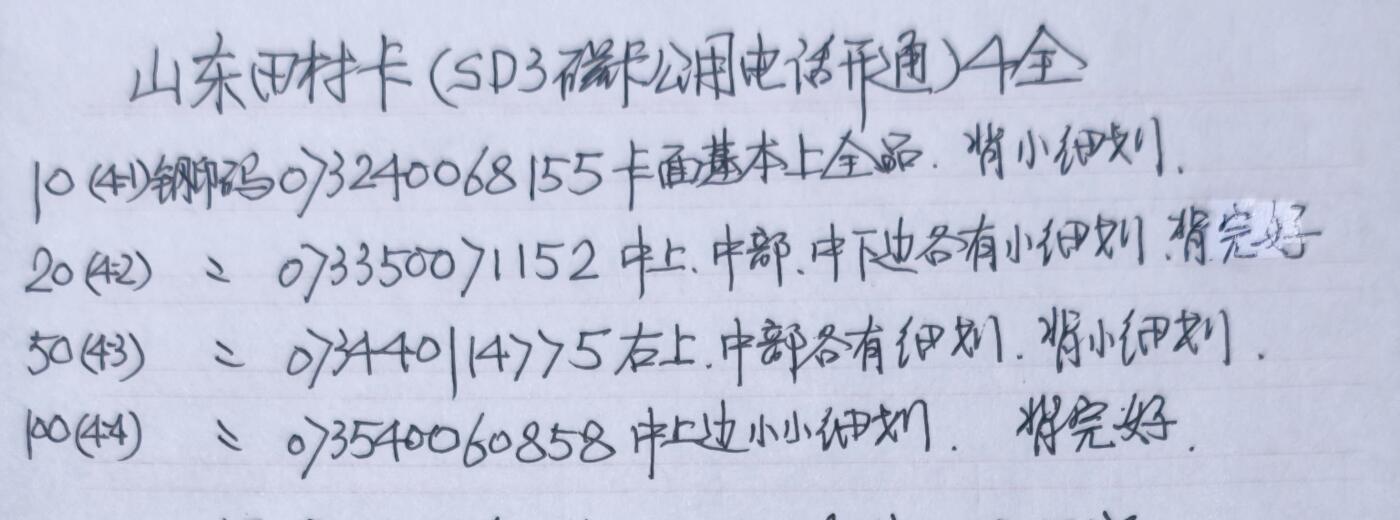 山东田村卡(SD3磁卡公用电话开通)4全
10(4-1)钢印码073240068155卡面基本上全品.背小细划.
20(4-2) 〃 073350071152中上.中部.中下边各有小细划.背完好
50(4-3) 〃 073440114775右上.中部各有细划.背小细划.
100(4-4) 〃 073540060858中上边小小细划. 背完好.